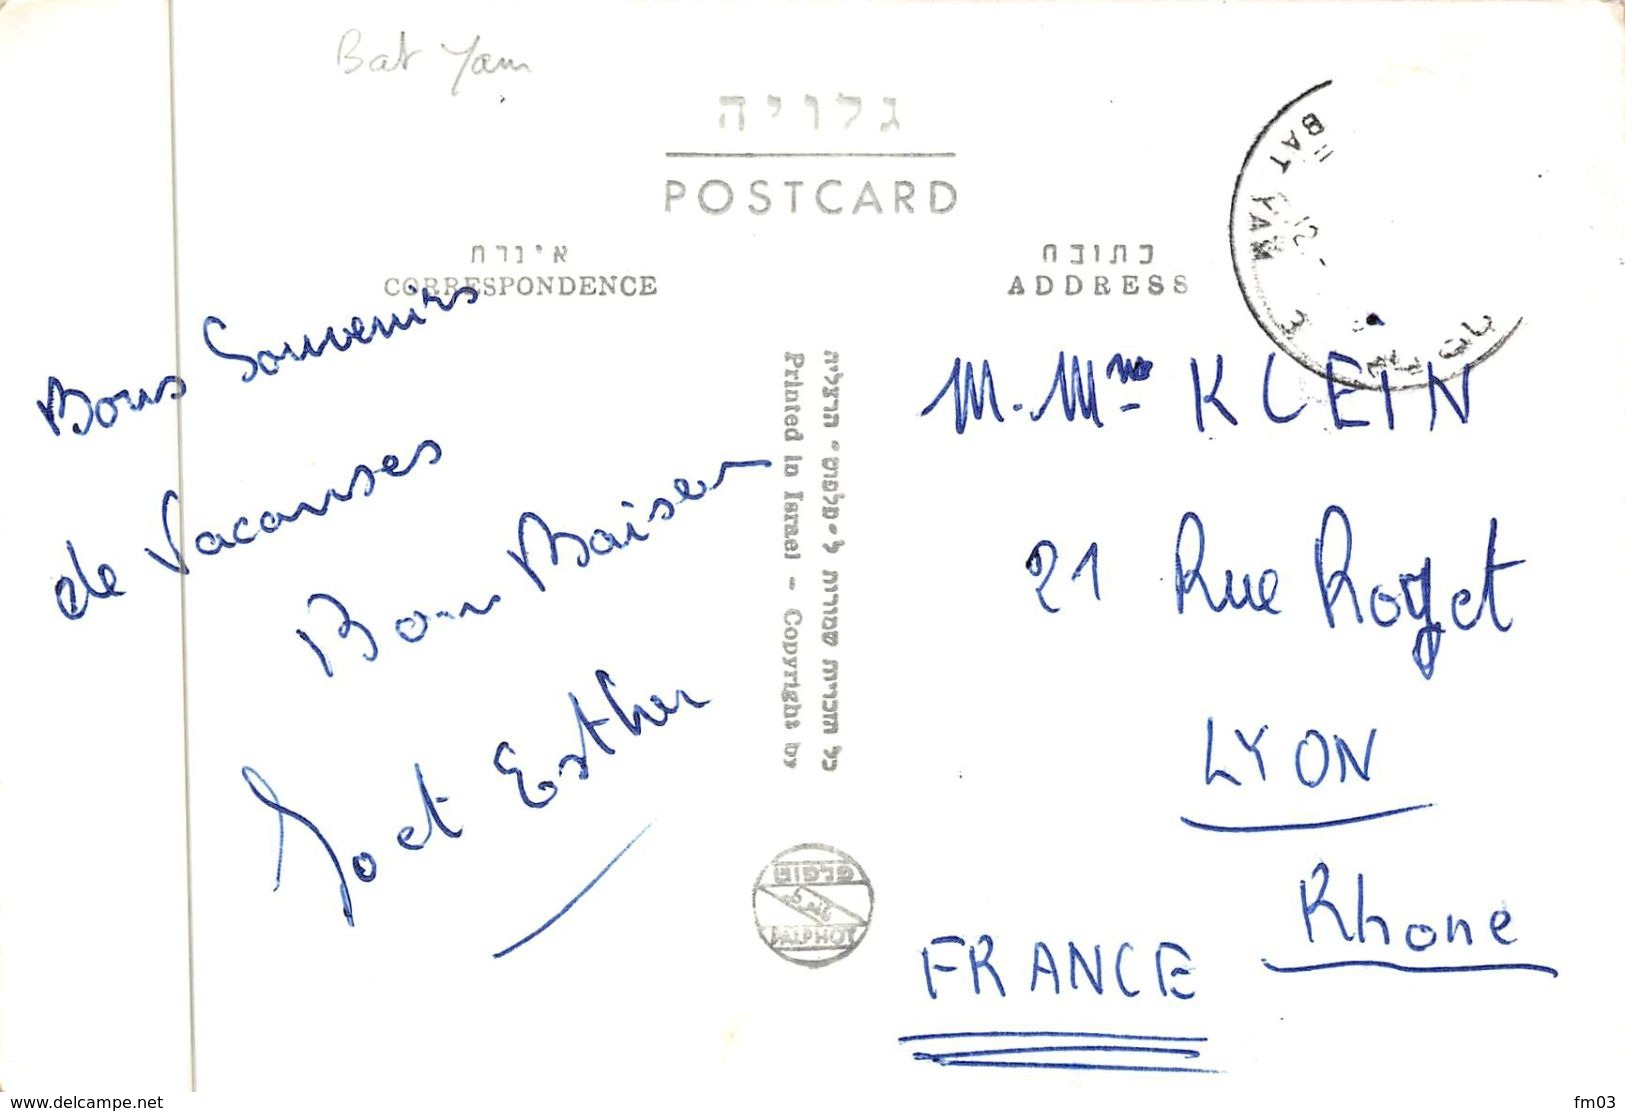 Bat Yam
גלויה
POSTCARD
איגרת
CORRESPONDENCE
כתובת
ADDRESS
BAT YAM 3
בת ים
Bons Souvenirs
de Vacanses
Bons Baisers
Jo et Esther
כל הזכויות שמורות ל״פלפוט״ הרצליה
Printed in Israel - Copyright by
פלפוט
PALPHOT
M. Mme KLEIN
21 Rue Royet
LYON
Rhone
FRANCE
www.delcampe.net
fm03